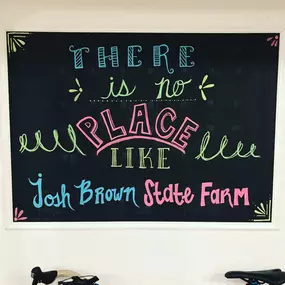 THERE
is no
PLACE
LIKE
Josh Brown State Farm